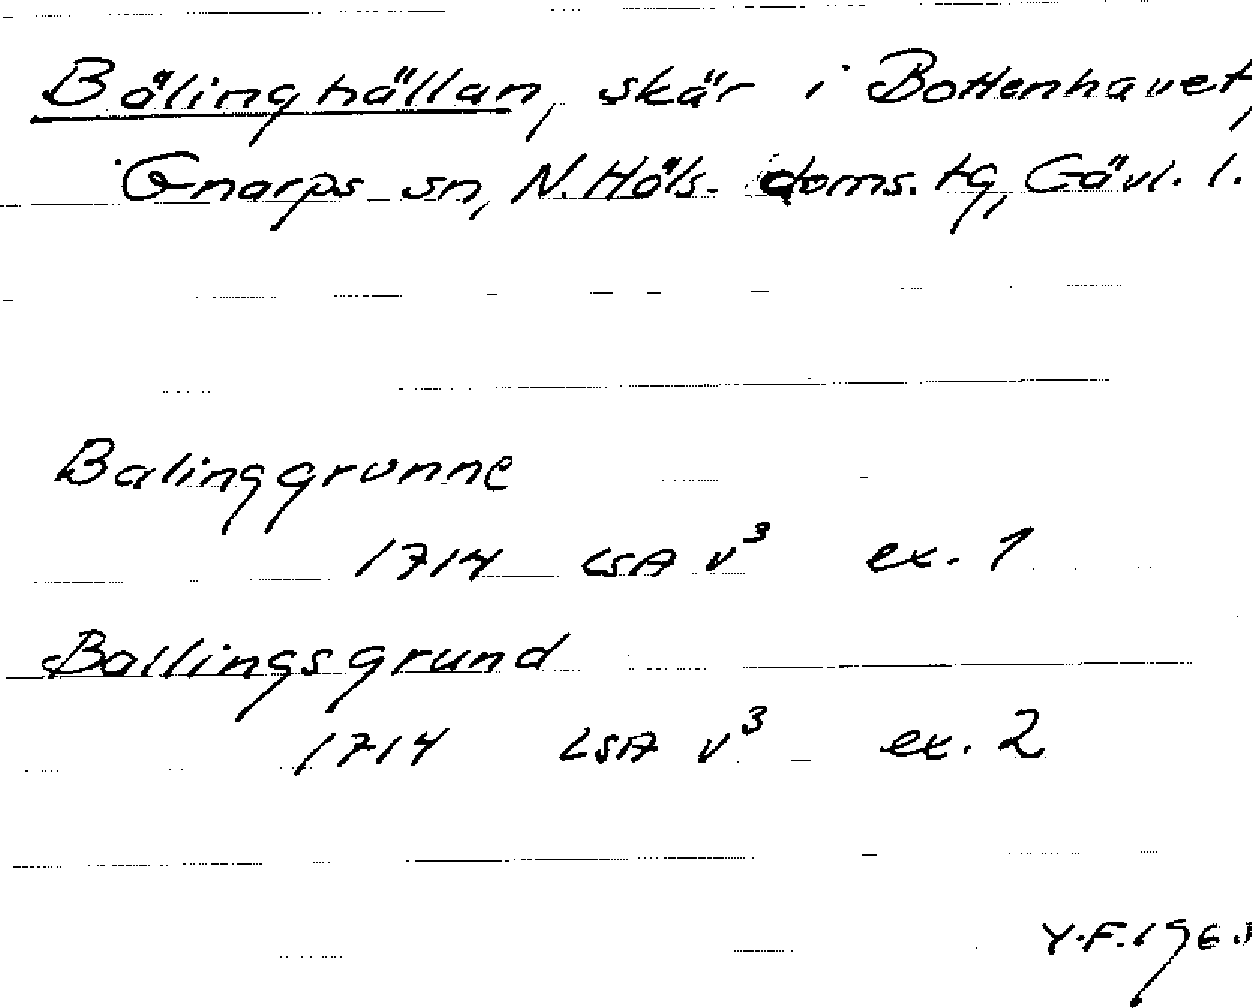 Bälinghällan, skär i Bottenhavet,
Gnarps sn, N. Häls. doms. tg, Gävl. l.
Balinggrunne
1714 LSA v³ ex. 1
Ballingsgrund
1714 LSA v³ ex. 2
Y.F.